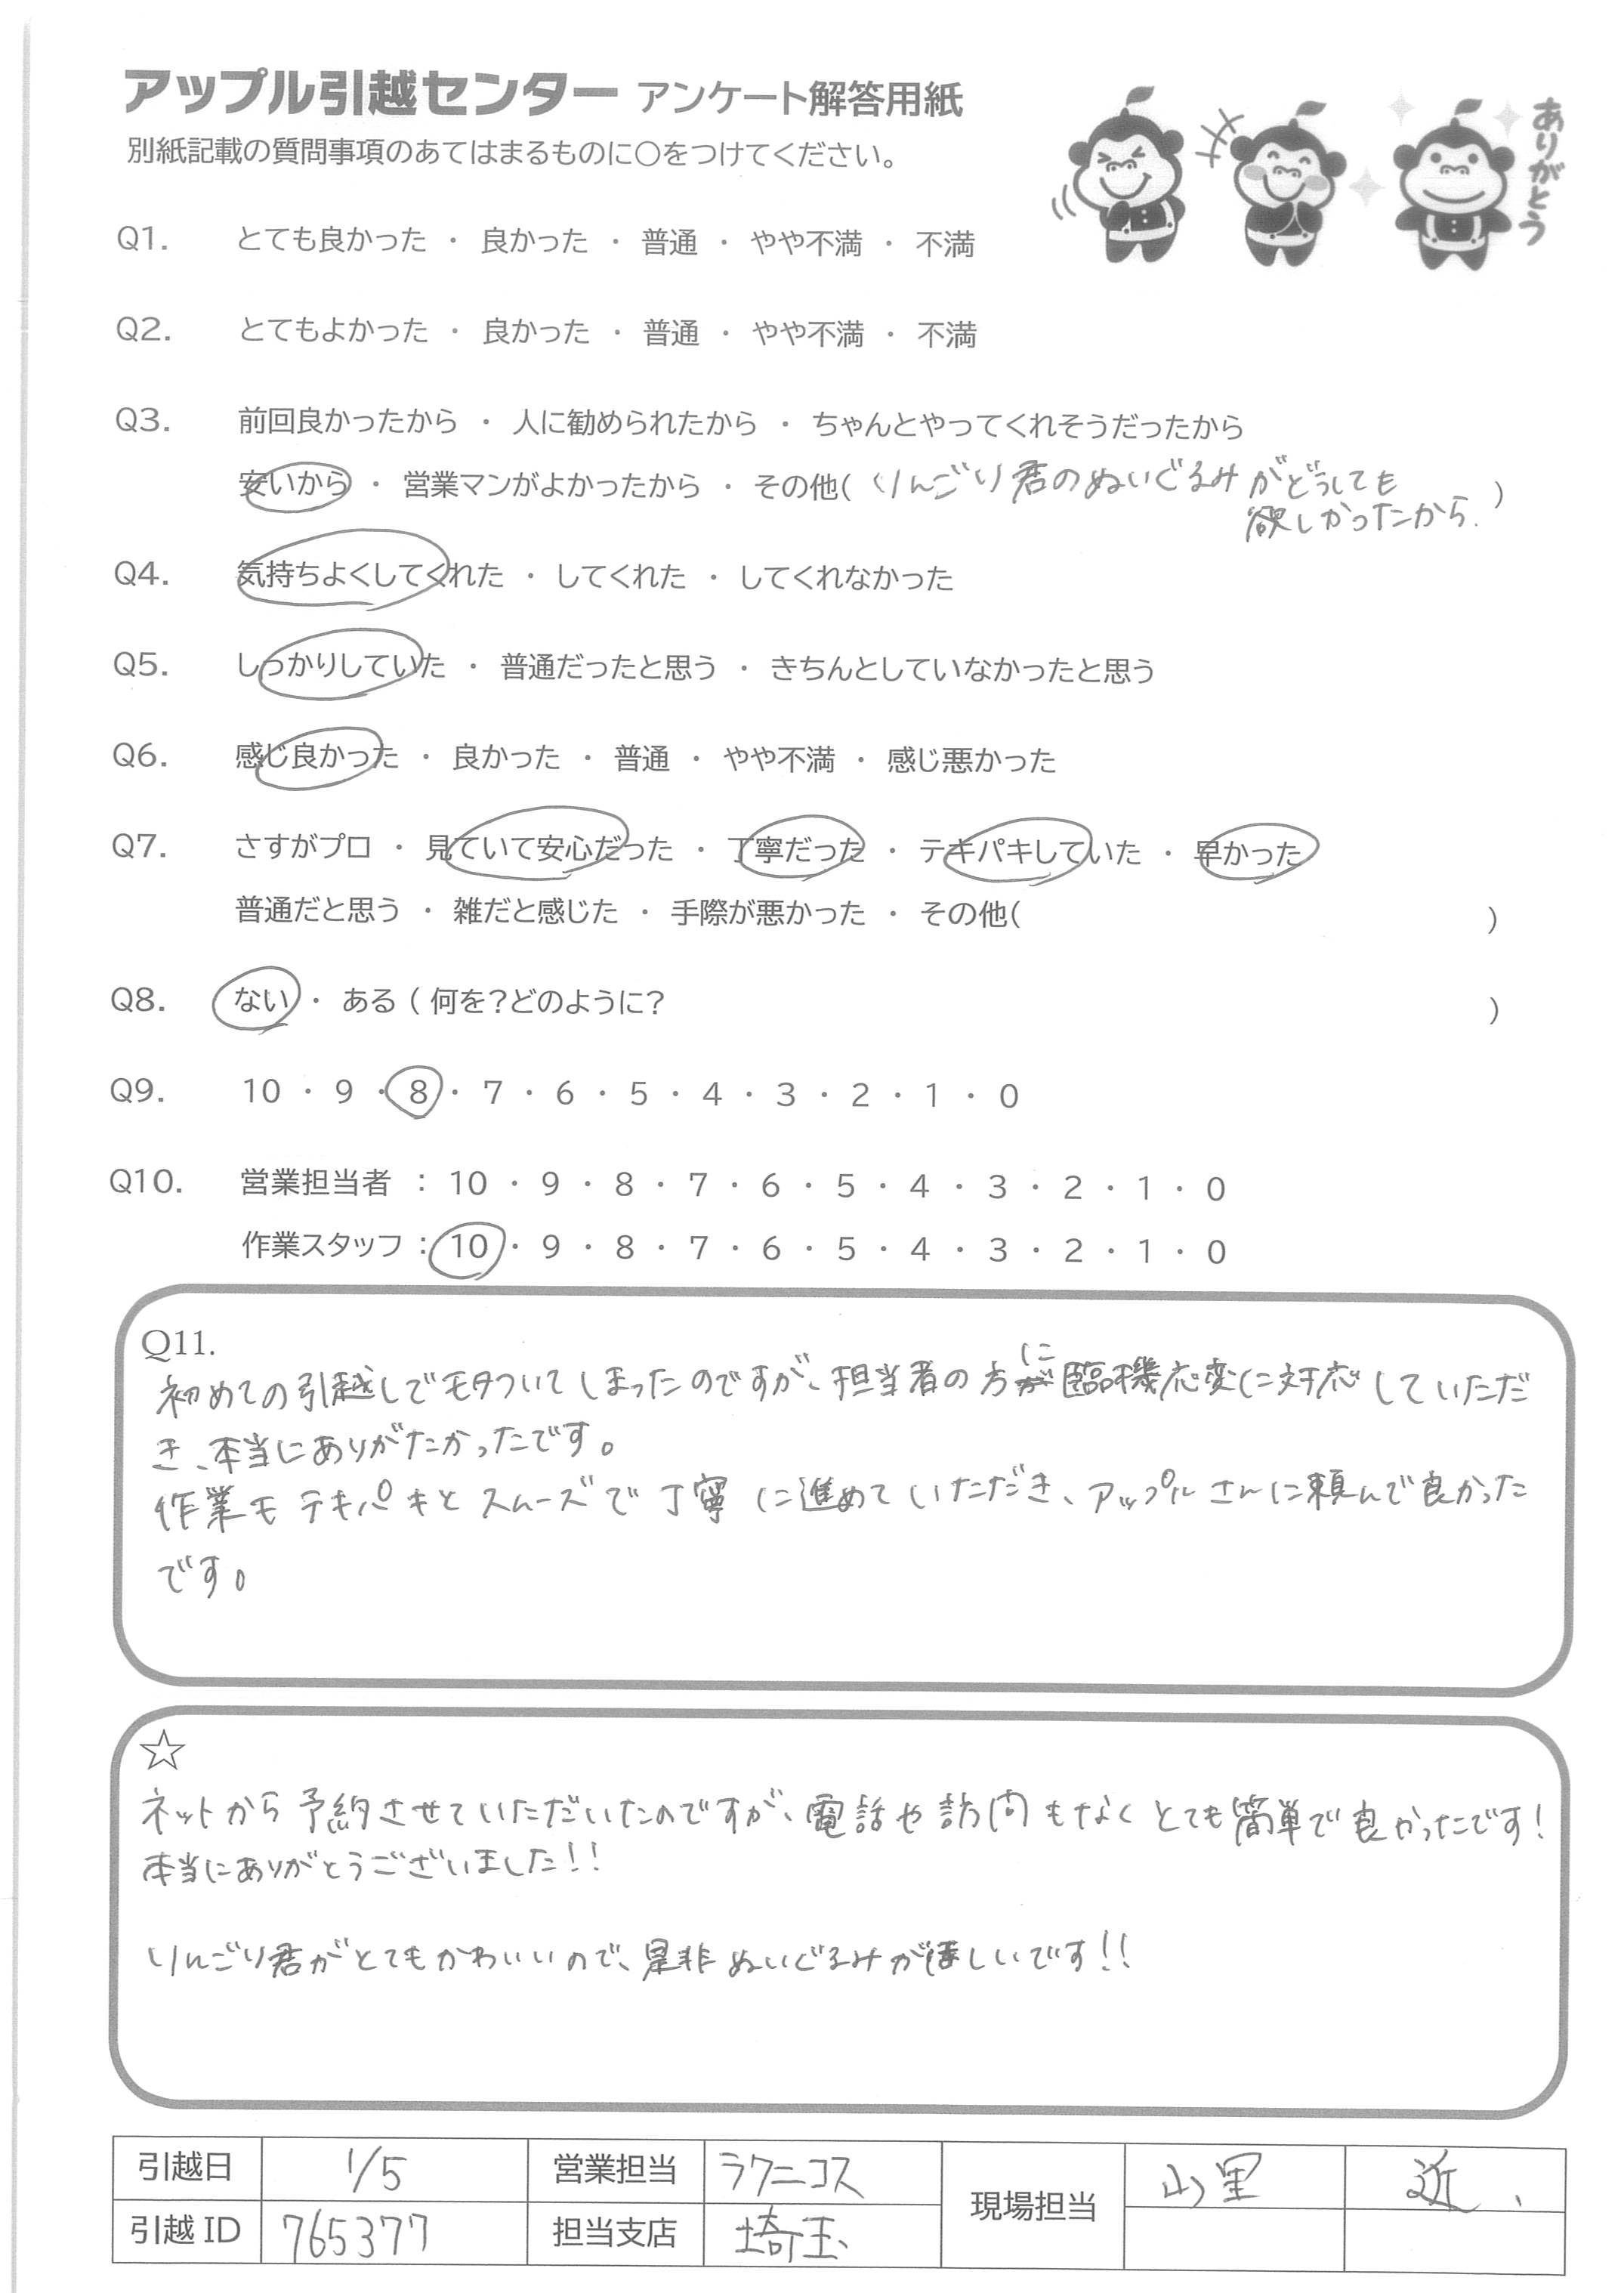 アップル引越センター アンケート解答用紙
別紙記載の質問事項のあてはまるものに○をつけてください。
ありがとう
Q1. とても良かった ・ 良かった ・ 普通 ・ やや不満 ・ 不満
Q2. とてもよかった ・ 良かった ・ 普通 ・ やや不満 ・ 不満
Q3. 前回良かったから ・ 人に勧められたから ・ ちゃんとやってくれそうだったから
安いから ・ 営業マンがよかったから ・ その他( りんごり君のぬいぐるみがどうしても
欲しかったから. )
Q4. 気持ちよくしてくれた ・ してくれた ・ してくれなかった
Q5. しっかりしていた ・ 普通だったと思う ・ きちんとしていなかったと思う
Q6. 感じ良かった ・ 良かった ・ 普通 ・ やや不満 ・ 感じ悪かった
Q7. さすがプロ ・ 見ていて安心だった ・ 丁寧だった ・ テキパキしていた ・ 早かった
普通だと思う ・ 雑だと感じた ・ 手際が悪かった ・ その他( )
Q8. ない ・ ある ( 何を?どのように? )
Q9. 10 ・ 9 ・ 8 ・ 7 ・ 6 ・ 5 ・ 4 ・ 3 ・ 2 ・ 1 ・ 0
Q10. 営業担当者 : 10 ・ 9 ・ 8 ・ 7 ・ 6 ・ 5 ・ 4 ・ 3 ・ 2 ・ 1 ・ 0
作業スタッフ : 10 ・ 9 ・ 8 ・ 7 ・ 6 ・ 5 ・ 4 ・ 3 ・ 2 ・ 1 ・ 0
Q11.
初めての引越しでモタついてしまったのですが、担当者の方に臨機応変に対応していただ
き、本当にありがたかったです。
作業もテキパキとスムーズで丁寧に進めていただき、アップルさんに頼んで良かった
です。
☆
ネットから予約させていただいたのですが、電話や訪問もなくとても簡単で良かったです!
本当にありがとうございました!!
りんごり君がとてもかわいいので、是非ぬいぐるみがほしいです!!
引越日 1/5 営業担当 ラクニコス 現場担当 山里 近、
引越ID 765377 担当支店 埼玉